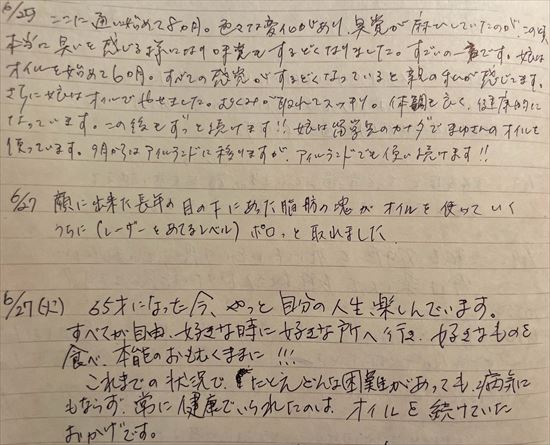 6/25 ここに通い始めて8カ月。色々な変化があり、臭覚が麻ひしていたのが、この頃
本当に臭いを感じる様になり味覚もするどくなりました。すごいの一言です。娘は
オイルを始めて6カ月。すべての感覚がするどくなっていると親の私が感じてます。
さらに娘はオイルでやせました。おくみが取れてスッキリ。体調も良く、健康的に
なっています。この後もずっと続けます!! 娘は留学先のカナダでまゆさんのオイルを
使っています。9月からはアイルランドに移りますが、アイルランドでも使い続けます!!
6/27 顔に出来た長年の目の下にあった脂肪の塊がオイルを使っていく
うちに(レーザーをあてるレベル)ポロっと取れました
6/27(火) 65才になった今、やっと自分の人生、楽しんでいます。
すべてが自由、好きな時に好きな所へ行き、好きなものを
食べ、本能のおもむくままに!!!
これまでの状況で、たとえどんな困難があっても、病気に
もならず、常に健康でいられたのは、オイルを続けていた
おかげです。